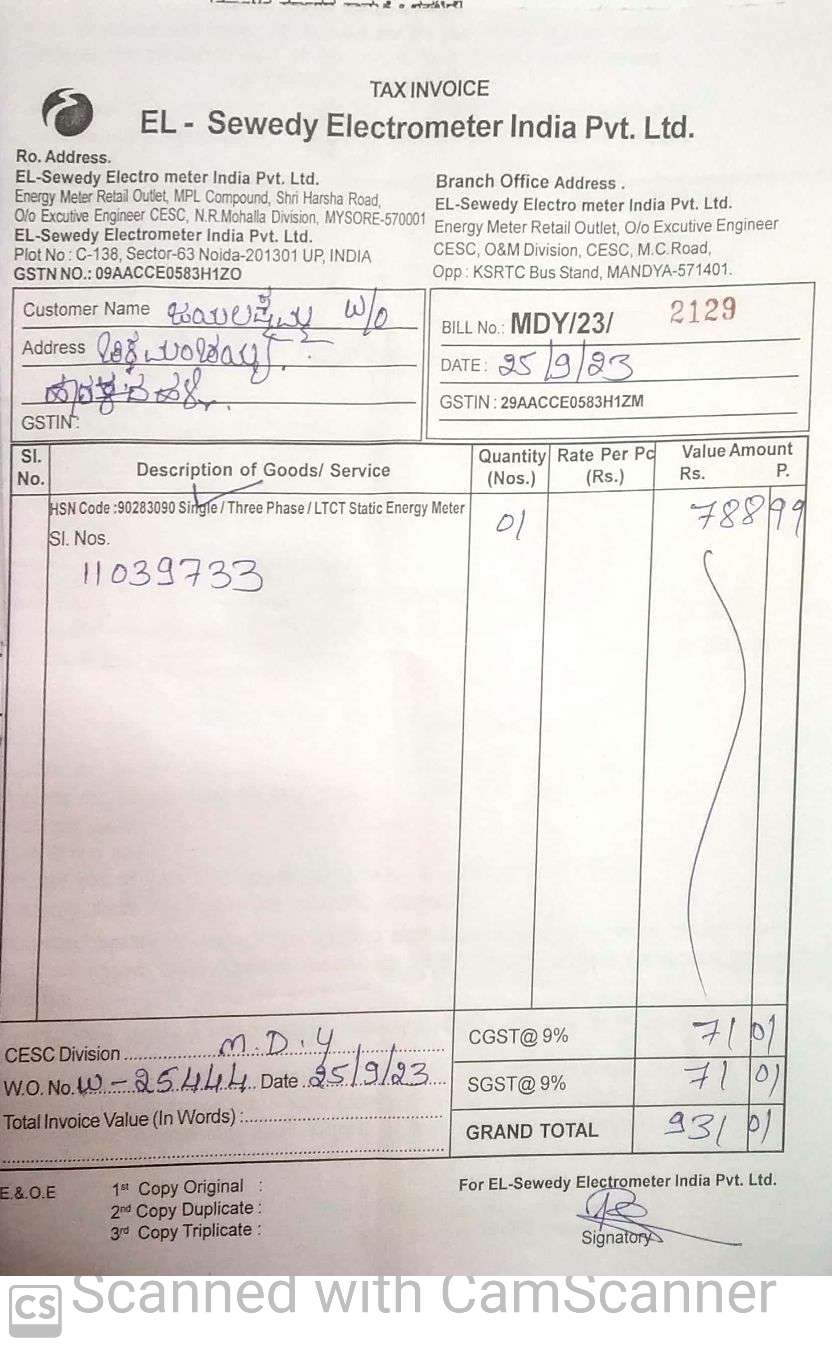 TAX INVOICE
EL - Sewedy Electrometer India Pvt. Ltd.
Ro. Address.
EL-Sewedy Electro meter India Pvt. Ltd.
Energy Meter Retail Outlet, MPL Compound, Shri Harsha Road,
O/o Excutive Engineer CESC, N.R.Mohalla Division, MYSORE-570001
EL-Sewedy Electrometer India Pvt. Ltd.
Plot No : C-138, Sector-63 Noida-201301 UP, INDIA
GSTN NO.: 09AACCE0583H1ZO
Branch Office Address .
EL-Sewedy Electro meter India Pvt. Ltd.
Energy Meter Retail Outlet, O/o Excutive Engineer
CESC, O&M Division, CESC, M.C.Road,
Opp : KSRTC Bus Stand, MANDYA-571401.
Customer Name W/O
Address
GSTIN:
BILL No.: MDY/23/ 2129
DATE : 25/9/23
GSTIN : 29AACCE0583H1ZM
Sl. No. Description of Goods/ Service Quantity (Nos.) Rate Per Pc (Rs.) Value Amount Rs. P.
HSN Code :90283090 Single / Three Phase / LTCT Static Energy Meter 01 788 99
Sl. Nos.
11039733
CESC Division M.D.Y
W.O. No. W-25444 Date 25/9/23
Total Invoice Value (In Words) :
CGST@ 9% 71 01
SGST@ 9% 71 01
GRAND TOTAL 931 01
E.&.O.E
1st Copy Original :
2nd Copy Duplicate :
3rd Copy Triplicate :
For EL-Sewedy Electrometer India Pvt. Ltd.
Signatory
CS Scanned with CamScanner